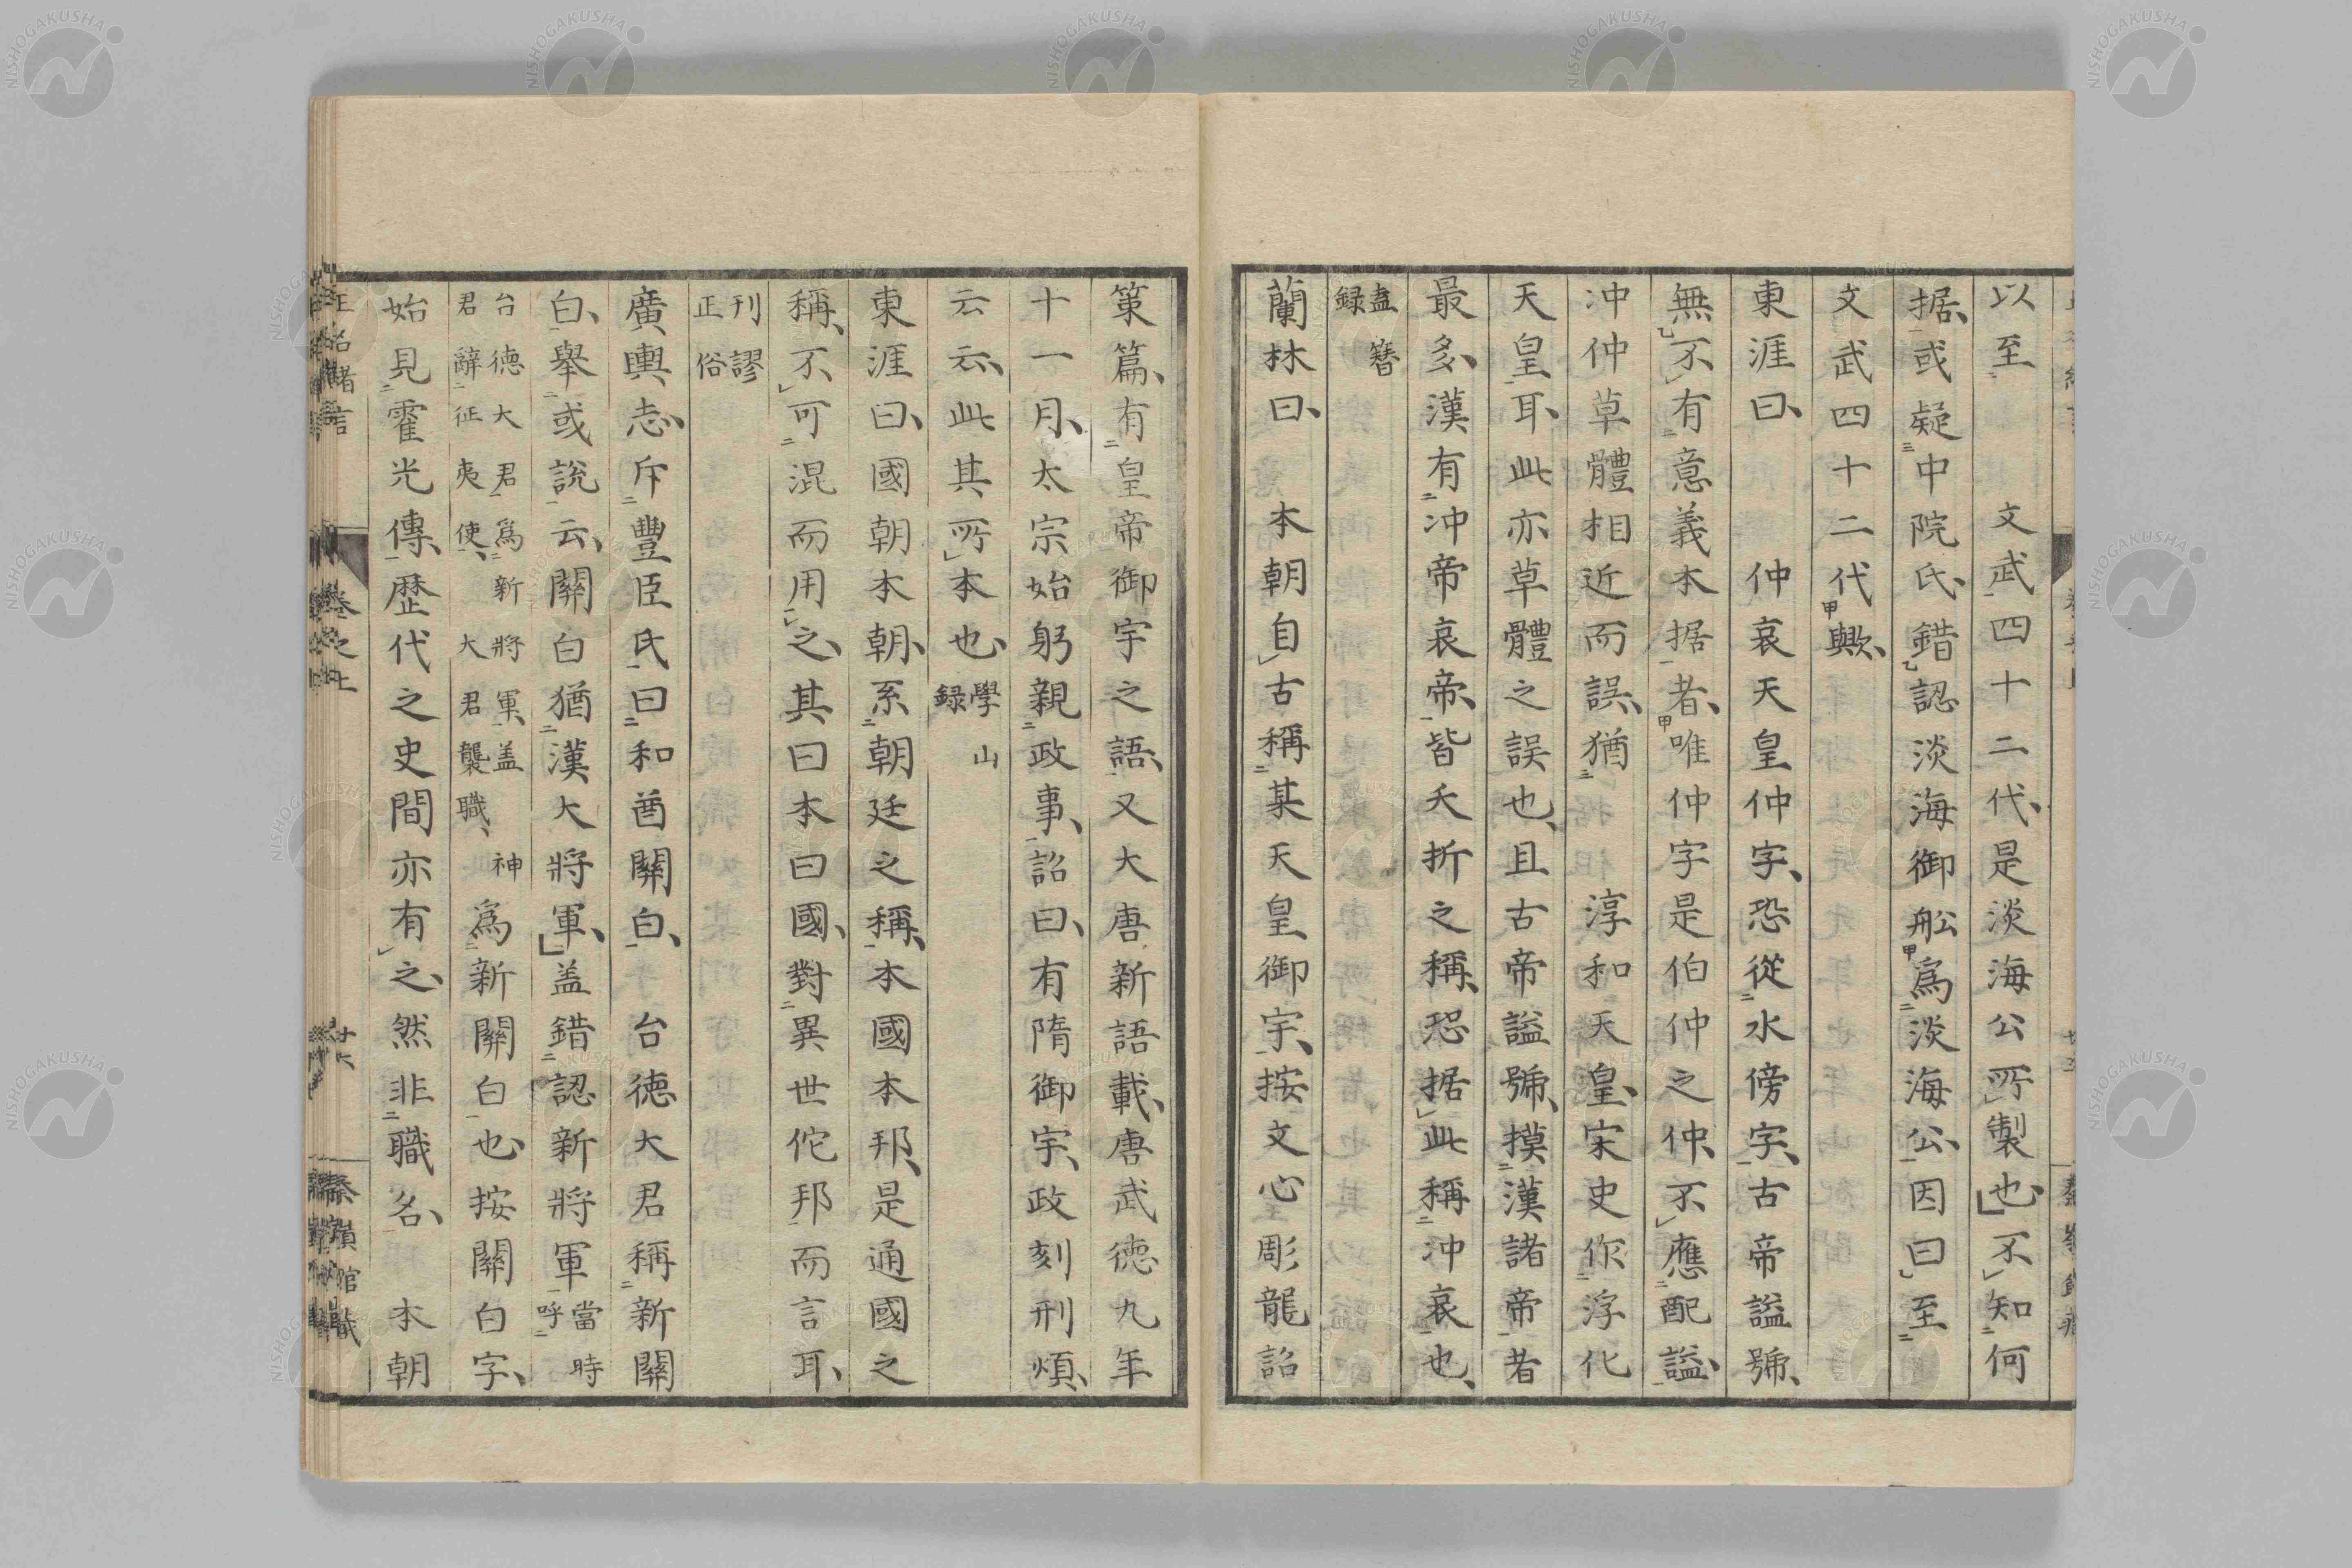 以至　　文武四十二代、是淡海公所製也、不知何
据、或疑中院氏、錯認淡海御舩為淡海公、因曰至
文武四十二代歟、
東涯曰、　　仲哀天皇仲字、恐從水傍字、古帝謚號、
無不有意義本据者、唯仲字是伯仲之仲、不應配謚、
冲仲草體相近而誤、猶　　淳和天皇、宋史作浮化
天皇耳、此亦草體之誤也、且古帝謚號、摸漢諸帝者
最多、漢有冲帝哀帝、皆夭折之稱、恐据此稱冲哀也、
盍簪
録
蘭林曰、　本朝自古稱某天皇御宇、按文心彫龍詔
策篇、有皇帝御宇之語、又大唐新語載、唐武德九年
十一月、太宗始躬親政事、詔曰、有隋御宇、政刻刑煩、
云云、此其所本也、學山
録
東涯曰、國朝本朝、系朝廷之稱、本國本邦、是通國之
稱、不可混而用之、其曰本曰國、對異世佗邦而言耳、
刊謬
正俗
廣輿志、斥豐臣氏曰和酋關白、　台德大君稱新關
白、舉或說云、關白猶漢大將軍、盖錯認新將軍當時
呼
台德大君為新將軍、盖　神
君辭征夷使、　大君襲職、為新關白也、按關白字、
始見霍光傳、歷代之史間亦有之、然非職名、　本朝
正名緒言
卷之上
廿六